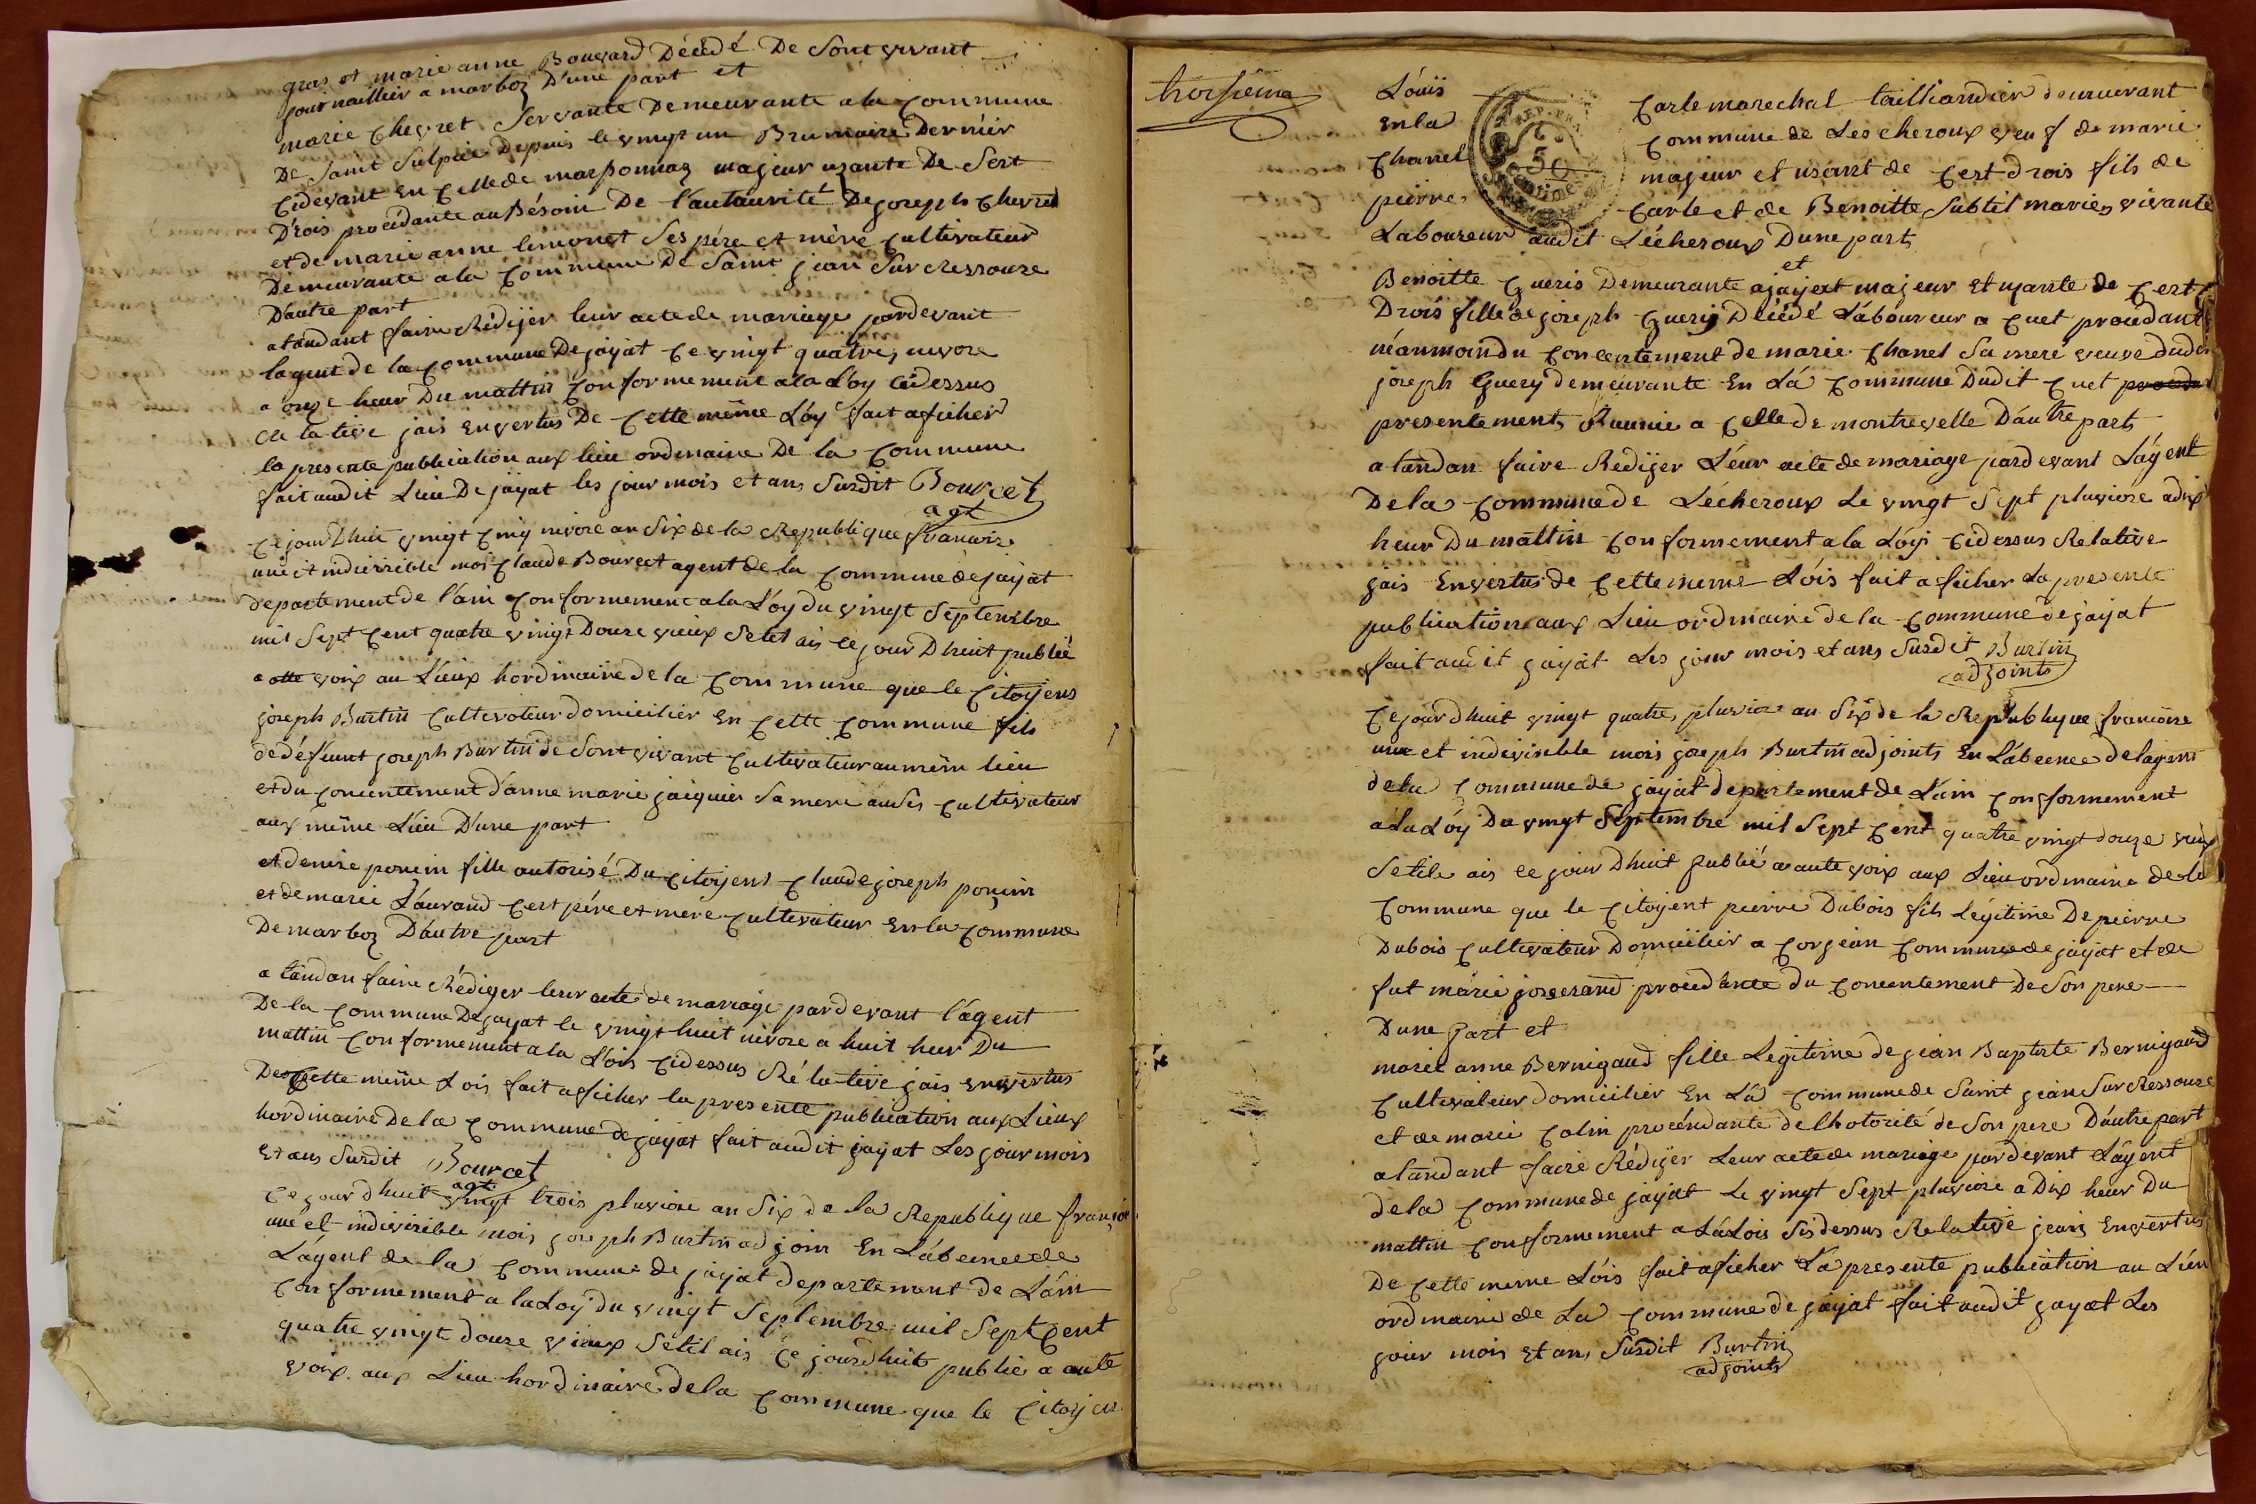 gras et marie anne Bouvard Décédé De Sont vivant
journaillier a marboz D'une part et
marie Chevret Servante Demeurante a la Commune
De Saint Sulpice Depuis le vingt un Brumaire Dernier
Cidevant En Celle de marsonnaz majeur usante De Sert
Drois procédante au Bésoin De l'autaurité De joseph Chevret
et de marie anne limonet Ses pére et mère Cultivateur
Demeurante a la Commune De Saint jean Sur Ressouze
D'autre part
atandant faire Rédijer leur acte de mariage pardevant
lagent de la Commune De jayat Ce vingt quatre nivore
a onze heur Du mattin Conformement a la Loy cidessus
Relative jais En vertus De Cette même Loy fait aficher
la presente publication aux lieu ordinaire De la Commune
fait audit Lieu De jayat les jour mois et ans Susdit Bourcet
agt
Cejourdhuit vingt Cinq nivore an Six de la Republique francoise
une et indivisible moi Claude Bourcet agent de la Commune de jayat
departement de l'ain Conformement a la Loy du vingt Septembre
mil Sept Cent quatre vingt Douze vieux Setet ais ce jour Dhuit publié
a otte voix au Lieux hordinaire de la Commune que le Citoyens
joseph Burtin Cultivateur domicilier En Cette Commune fils
de défunt joseph Burtin de Sont vivant Cultivateur au mêm lieu
et du Concentement d'anne marie jacquier Sa mere ausis Cultivateur
aux même Lieu D'une part
et denise poncin fille autorisé Du Citoyent Claude joseph poncin
et de marie Laurand Cest pére et mere Cultivateur En la Commune
De marboz D'autre part
a tandan faire Rédiger leur acte de mariage pardevant l'agent
De la Commune De jayat le vingt huit nivore a huit heur Du
mattin Conformement a la Lois Cidessus Rélative jais En vertus
De Cette même Lois fait aficher la presente publication aux Lieux
hordinaire De la Commune de jayat fait audit jayat Les jour mois
Et ans Susdit Bourcet
agt
Cejourdhuit vingt trois pluviore an Six de la Republique françoi
une et indivisible mois joseph Burtin adjoin En Labcence de
L'agent de la Commune de jayat departement de Lain
Conformement a la Loy du vingt Septembre mil Sept Cent
quatre vingt douze vieux Setet ais Ce jourdhuit publié a aute
voix aux Lieu hordinaire de la Commune que le Citoyen
troisiéme
Louis Carle marechal tailliandier demeurant
En la Commune de Lescheroux veuf de marie
Chanel majeur et usant de Cest drois fils de
pierre Carle et de Benoitte Subtil maries vivante
Laboureur audit Lécheroux D'une part
et
Benoitte Gueris Demeurante a jayat majeur Et usante de Cest
Drois fille de joseph Guery Décédé Laboureur a Cuet procédant
néanmoin du Concentement de marie Chanel Sa mere veuve dudi
joseph Guery demeurante En La Commune Dudit Cuet proceda
presentement Réunie a Celle de montrevelle D'autre part
a tandan faire Rediger Leur acte de mariage pardevant Lagent
De la Commune de Lécheroux Le vingt Sept pluviore a dix
heur Du mattin Conformement a la Loy Cidessus Relative
jais En vertus de Cette meme Lois fait aficher La presente
publication aux Lieu ordinaire de la Commune de jayat
fait audit jayat Les jour mois et ans Susdit Burtin
adjoints
Cejourdhuit vingt quatre pluviore an Six de la Republique francoise
une et indivisible mois joseph Burtin adjoints En Labcence de lagent
de la Commune de jayat departement de Lain Conformement
a La Loy Du vingt Septembre mil Sept Cent quatre vingt douze vieux
Setile ais ce jour Dhuit publié a aute voix aux Lieu ordinaire de la
Commune que le Citoyent pierre Dubois fils Légitime De pierre
Dubois Cultivateur Domicilier a Corjean Commune de jayat et de
fut marie joserand procédante du Concentement De Son pere
D'une part et
marie anne Bernigaud fille Legitime de jean Baptiste Bernigaud
Cultivateur domicilier En La Commune de Saint jean Sur Ressouze
et de marie Colin procéndante de lhotorité de Son pere D'autre part
atandant faire Rédijer Leur acte de mariage pardevant Layent
de la Commune de jayat Le vingt Sept pluviore a Dix heur Du
mattin Conformement a La Lois Sidessus Relative jeais En vertus
De Cette meme Lois fait aficher La presente publication au Lieu
ordinaire de La Commune de jayat fait audit jayat Les
jour mois Et ans Susdit Burtin
adjoints